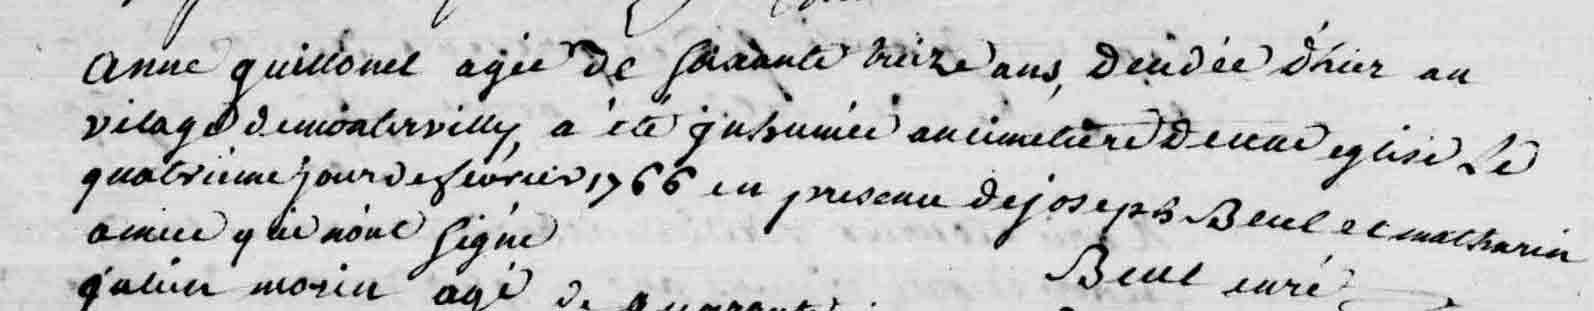 anne guillouet agée de soixante treize ans, décédée d'hier au
vilage de montervilly, a été jnhumée au cimetiere de cette eglise le
quatriéme jour de fevrier 1766 en presence de joseph Beul et mathurin
qui n'ont signé
Beul curé
julien morin agé de quarante